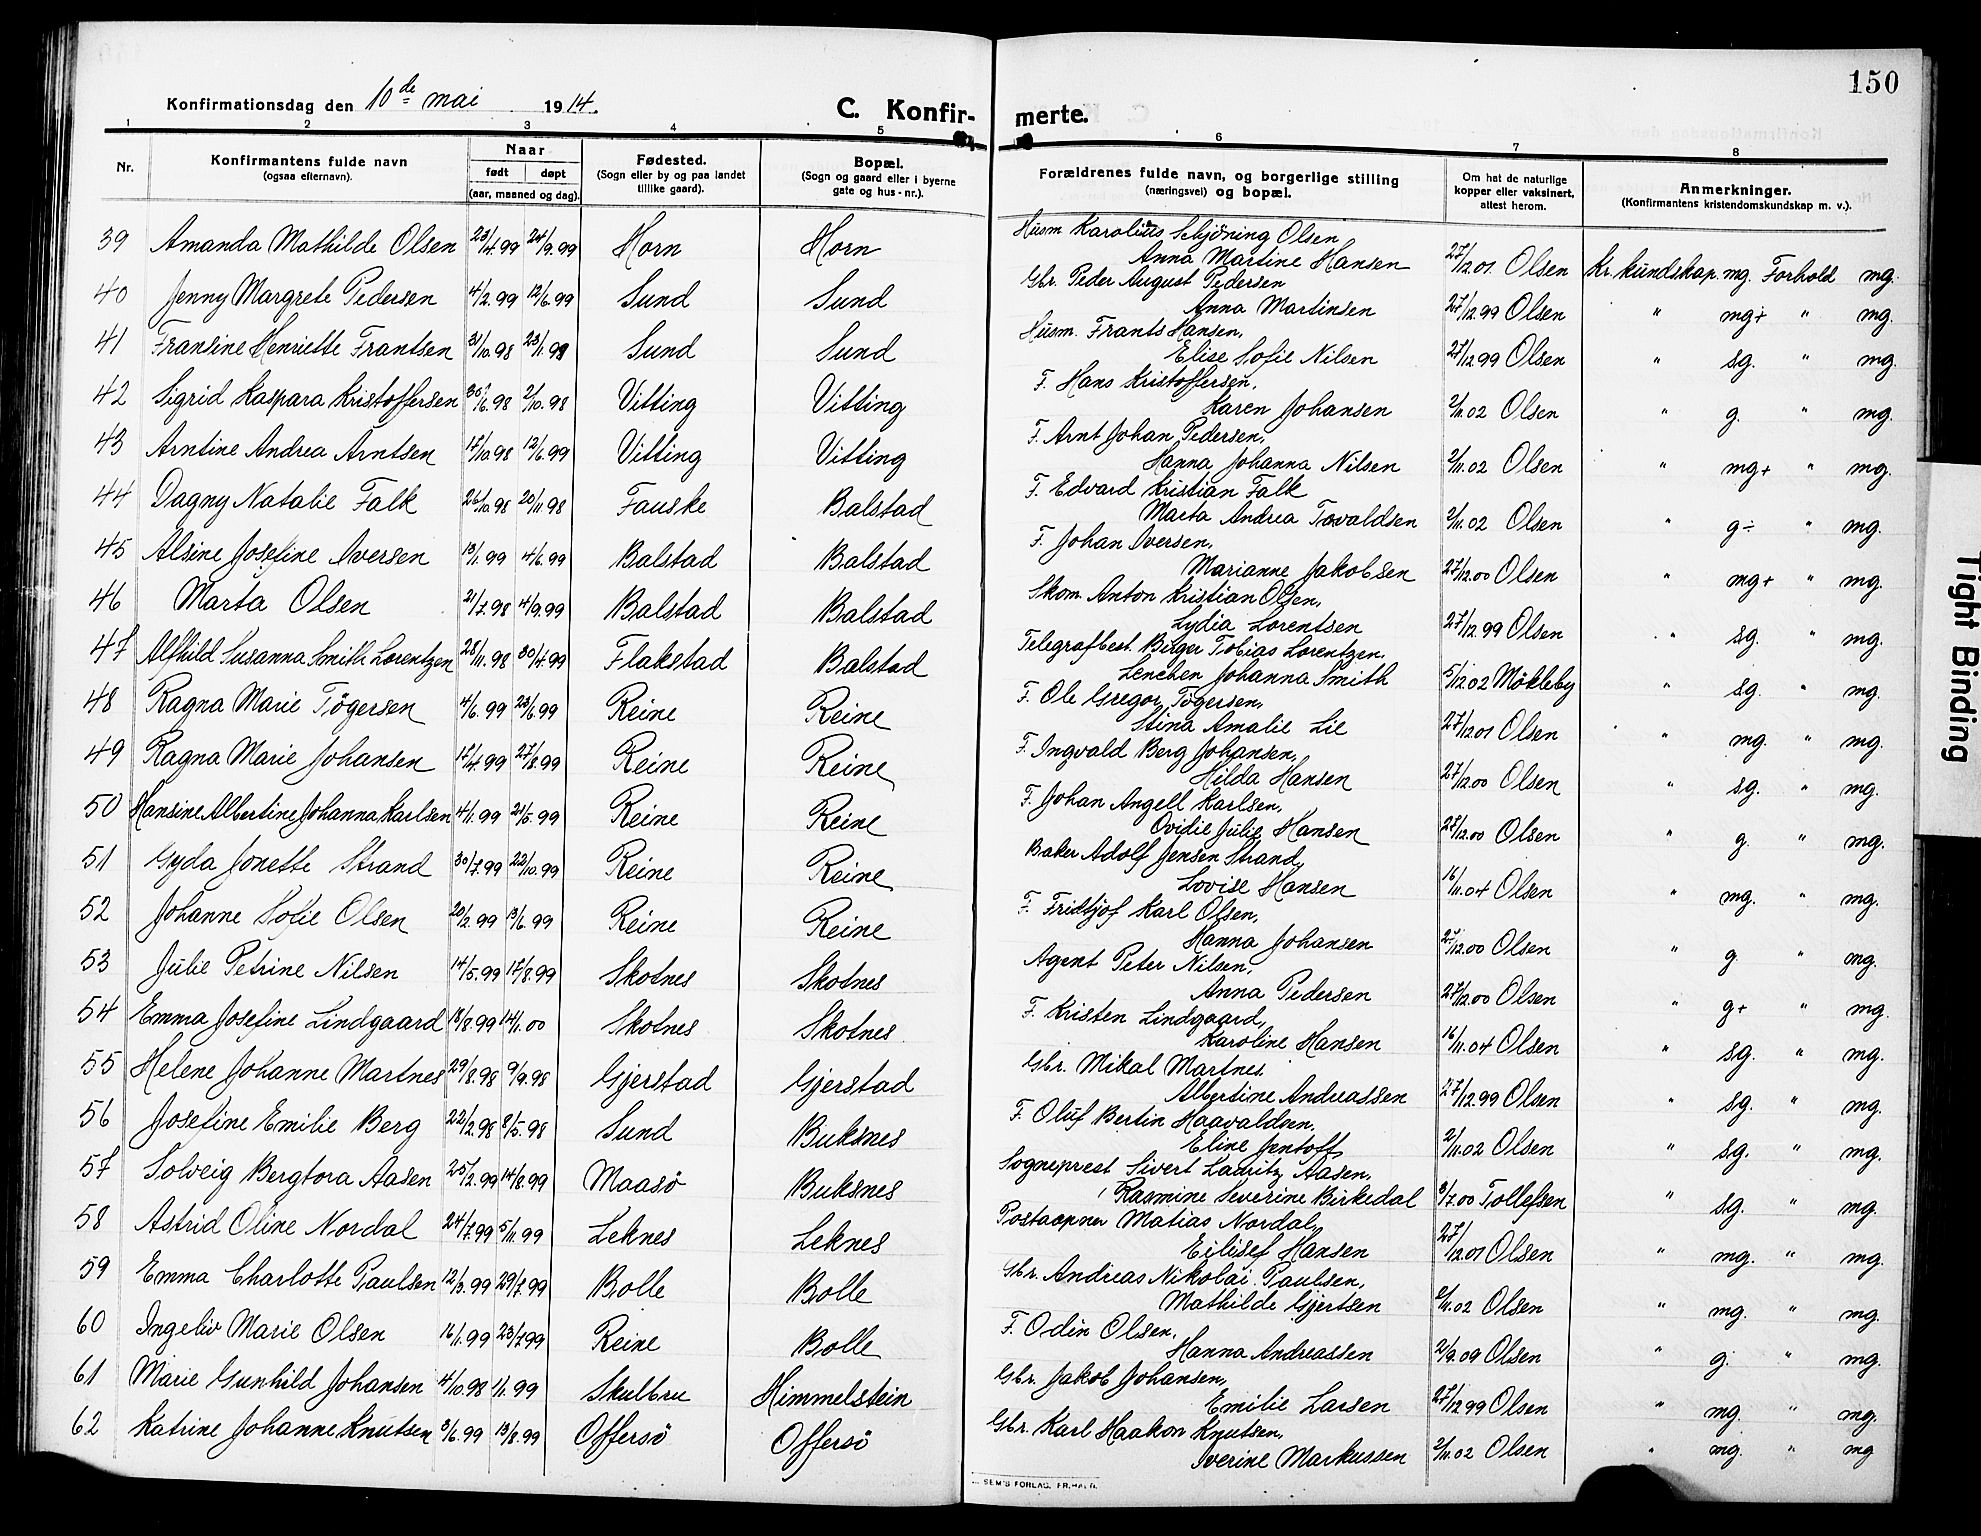 150
Konfirmationsdag den 10de mai 1914.
C. Konfir- merte.
1 2 3 4 5 6 7 8
Nr.
Konfirmantens fulde navn
(ogsaa efternavn).
Naar
født døpt
(aar, maaned og dag).
Fødested.
(Sogn eller by og paa landet
tillike gaard).
Bopæl.
(Sogn og gaard eller i byerne
gate og hus-nr.).
Forældrenes fulde navn, og borgerlige stilling
(næringsvei) og bopæl.
Om hat de naturlige
kopper eller vaksinert,
attest herom.
Anmerkninger.
(Konfirmantens kristendomskundskap m. v.).
39 Amanda Mathilde Olsen 23/4.99 24/9.99 Horn Horn Husm Karolius Schjöning Olsen,
Anna Martine Hansen 27/12.01 Olsen Kr. kundskap. mg. Forhold mg.
40 Jenny Margrete Pedersen 4/2.99 12/6.99 Sund Sund Gbr. Peder August Pedersen
Anna Martinsen 27/12.99 Olsen " mg+ " mg.
41 Fransine Henriette Frantsen 31/10.98 23/1.99 Sund Sund Husm. Frants Hansen,
Elise Sofie Nilsen 27/12.99 Olsen " sg. " mg.
42 Sigrid Kaspara Kristoffersen 30/6.98 2/10.98 Vitting Vitting F. Hans Kristoffersen,
Karen Johansen 2/11.02 Olsen " g. " mg.
43 Arntine Andrea Arntsen 17/10.98 12/6.99 Vitting Vitting F. Arnt Johan Pedersen,
Hanna Johanna Nilsen 2/11.02 Olsen " mg+ " mg.
44 Dagny Natalie Falk 26/10.98 20/11.98 Fauske Balstad F. Edvard Kristian Falk
Marta Andrea Tovaldsen 2/11.02 Olsen " g÷ " mg.
45 Alsine Josefine Iversen 13/1.99 4/6.99 Balstad Balstad F. Johan Iversen,
Marianne Jakobsen 27/12.00 Olsen " mg+ " mg.
46 Marta Olsen 21/7.98 4/9.99 Balstad Balstad Skom. Anton Kristian Olsen,
Lydia Lorentsen 27/12.99 Olsen " sg. " mg.
47 Alfhild Susanna Smith Lorentzen 28/11.98 30/4.99 Flakstad Balstad Telegrafbest. Birger Tobias Lorentzen,
Lenchen Johanna Smith 5/12.02 Mökleby " sg. " mg.
48 Ragna Marie Tögersen 4/6.99 23/6.99 Reine Reine F. Ole Gregor Tögersen,
Stina Amalie Lie 27/12.01 Olsen " mg. " mg.
49 Ragna Marie Johansen 17/4.99 27/8.99 Reine Reine F. Ingvald Berg Johansen,
Hilda Hansen 27/12.00 Olsen " sg. " mg.
50 Hansine Albertine Johanna Karlsen 4/1.99 21/5.99 Reine Reine F. Johan Angell Karlsen,
Ovidie Julie Hansen 27/12.00 Olsen " g. " mg.
51 Gyda Jonette Strand 30/7.99 22/10.99 Reine Reine Baker Adolf Jensen Strand,
Lovise Hansen 16/11.04 Olsen " mg. " mg.
52 Johanne Sofie Olsen 20/2.99 13/6.99 Reine Reine F. Fridtjof Karl Olsen,
Hanna Johansen 27/12.00 Olsen " g " mg.
53 Julie Petrine Nilsen 14/5.99 17/8.99 Skotnes Skotnes Agent Peter Nilsen,
Anna Pedersen 27/12.00 Olsen " g+ " mg.
54 Emma Josefine Lindgaard 18/8.99 14/1.00 Skotnes Skotnes F. Kristen Lindgaard,
Karoline Hansen 16/11.04 Olsen " sg. " mg.
55 Helene Johanne Martnes 29/8.98 9/9.98 Gjerstad Gjerstad Gbr. Mikal Martnes
Albertine Andreassen 27/12.99 Olsen " sg. " mg.
56 Josefine Emilie Berg 22/2.98 8/5.98 Sund Buksnes F. Oluf Bertin Haavaldsen,
Eline Jentoft 2/11.02 Olsen " sg. " mg.
57 Solveig Bergtora Aasen 25/2.99 14/8.99 Maasö Buksnes Sogneprest Sivert Lauritz Aasen,
Rasmine Severine Birkedal 3/7.00 Tollefsen " sg. " mg.
58 Astrid Oline Nordal 24/7.99 5/11.99 Leknes Leknes Postaapner Matias Nordal,
Eilisef Hansen 27/12.01 Olsen " mg. " mg.
59 Emma Charlotte Paulsen 12/3.99 29/7.99 Bolle Bolle Gbr. Andreas Nikolai Paulsen,
Mathilde Gjertsen 2/11.02 Olsen " mg. " mg.
60 Ingeliv Marie Olsen 16/1.99 23/7.99 Reine Bolle F. Odin Olsen,
Hanna Andreassen 2/9.09 Olsen " g. " mg.
61 Marie Gunhild Johansen 4/10.98 1/1.99 Skulbru Himmelstein Gbr. Jakob Johansen,
Emilie Larsen 27/12.99 Olsen " mg. " mg.
62 Katrine Johanne Knutsen 3/6.99 13/8.99 Offersö Offersö Gbr. Karl Haakon Knutsen,
Iverine Markussen 2/11.02 Olsen " mg. " mg
SEM'S FORLAG, FR.HALD.
Tight Binding